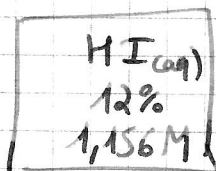 HI(aq)
12%
1,156 M